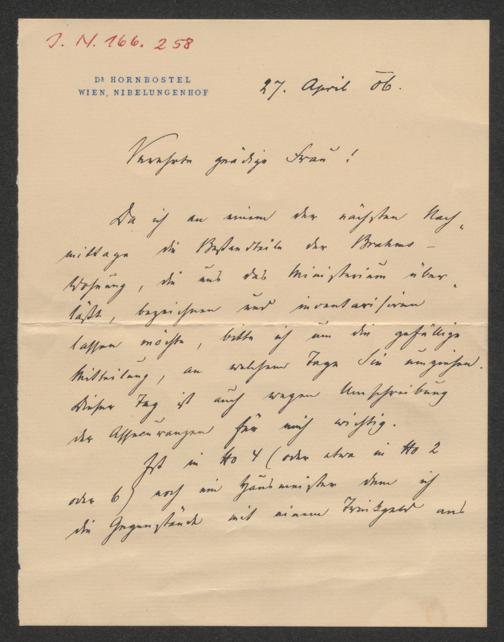 J. N. 166.258
DR HORNBOSTEL
WIEN, NIBELUNGENHOF
27. April 06.
Verehrte gnädige Frau!
Da ich an einem der nächsten Nach-
mittage die Bestandteile der Brahms-
Wohnung, die uns das Ministerium über-
läßt, bezeichnen und inventarisiren
lassen möchte, bitte ich um die gefällige
Mitteilung, an welchem Tage Sie umziehen.
Dieser Tag ist auch wegen Umschreibung
der Assecuranzen für mich wichtig.
Ist in No 4 (oder etwa in No 2
oder 6) noch ein Hausmeister dem ich
die Gegenstände mit einem Trinkgeld ans